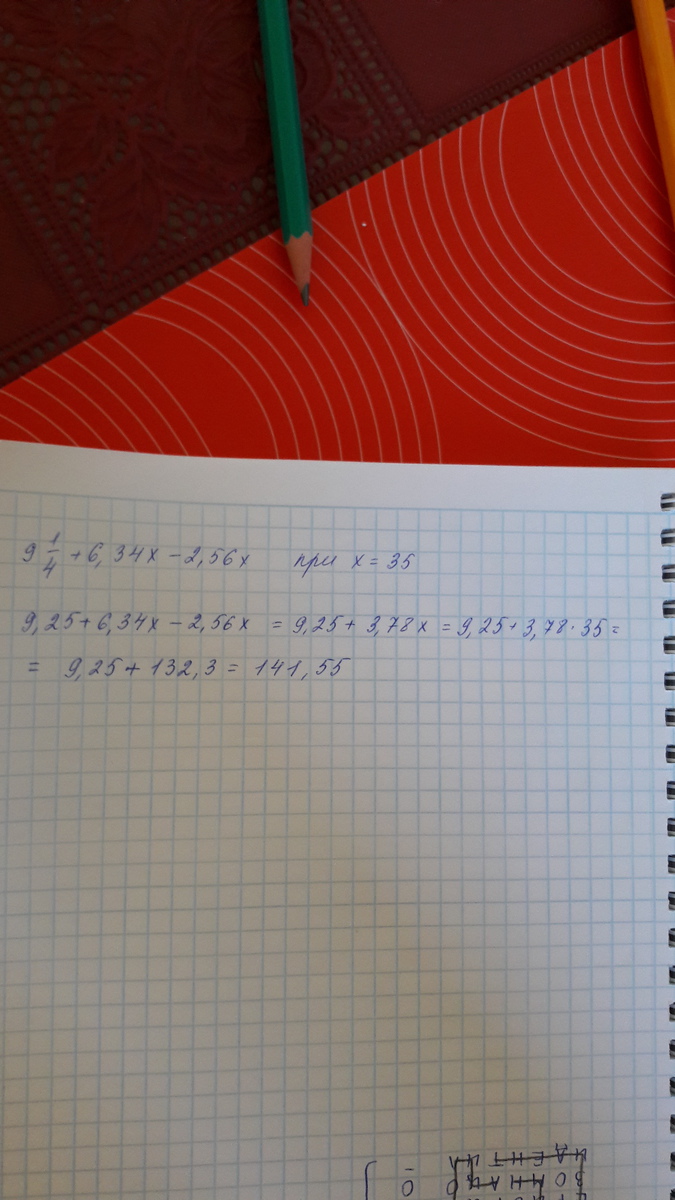 9 1/4 + 6,34x − 2,56x при x = 35
9,25 + 6,34x − 2,56x = 9,25 + 3,78x = 9,25 + 3,78 · 35 =
= 9,25 + 132,3 = 141,55